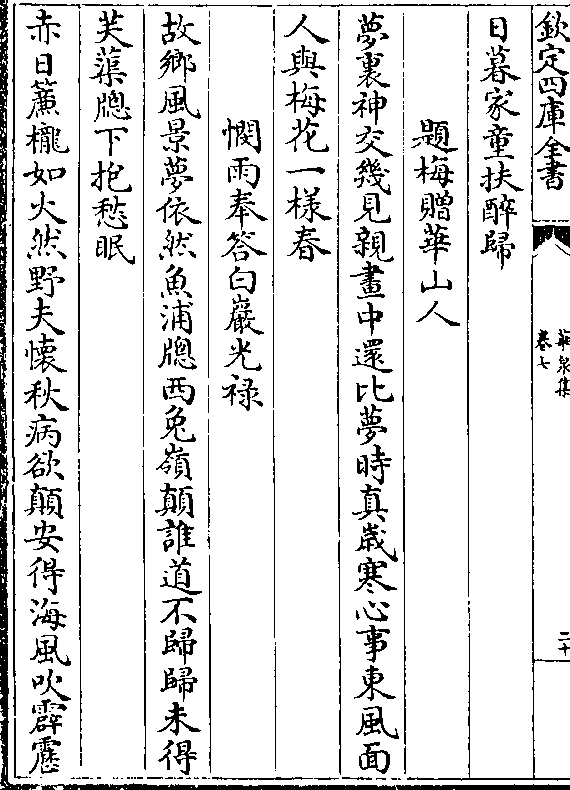 欽定四庫全書
莊泉集
卷七
二十
日暮家童扶醉歸
題梅贈華山人
夢裏神交幾見親畫中還比夢時真歲寒心事東風面
人與梅花一樣春
憫雨奉答白巖光禄
故鄉風景夢依然魚浦牎西兔嶺顛誰道不歸歸未得
芙蕖牎下抱愁眠
赤日簾櫳如火然野夫懷秋病欲顛安得海風吹霹靂